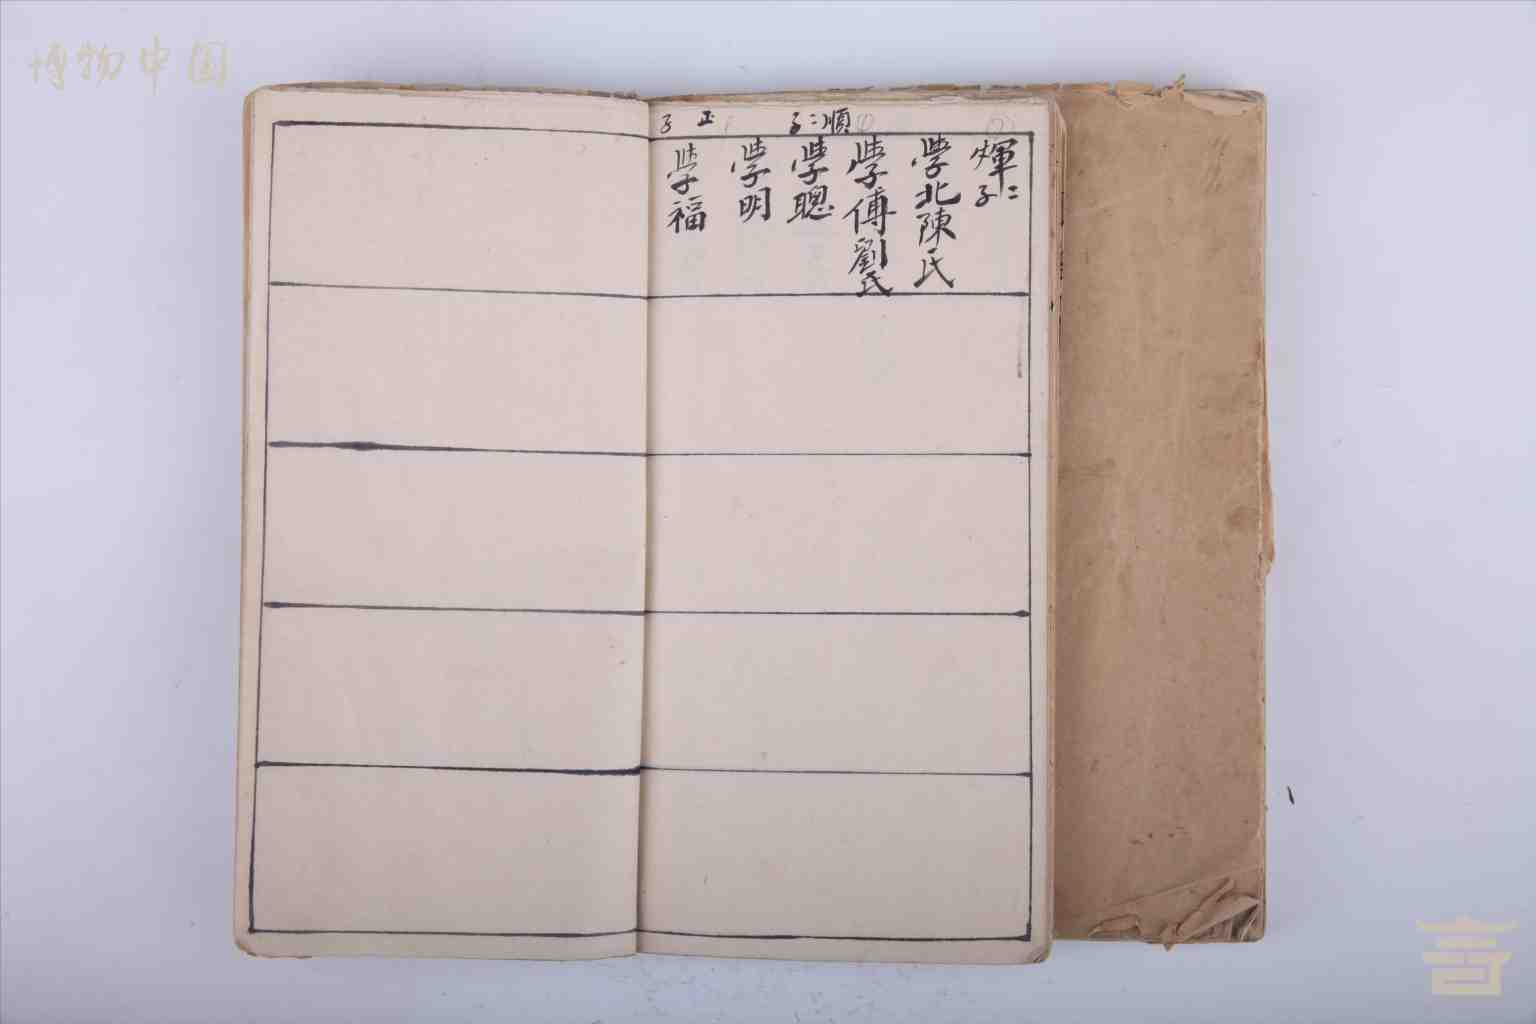 博物中国
順二子
正子
煇二子
學北陳氏
學傅劉氏
學聰
學明
學福